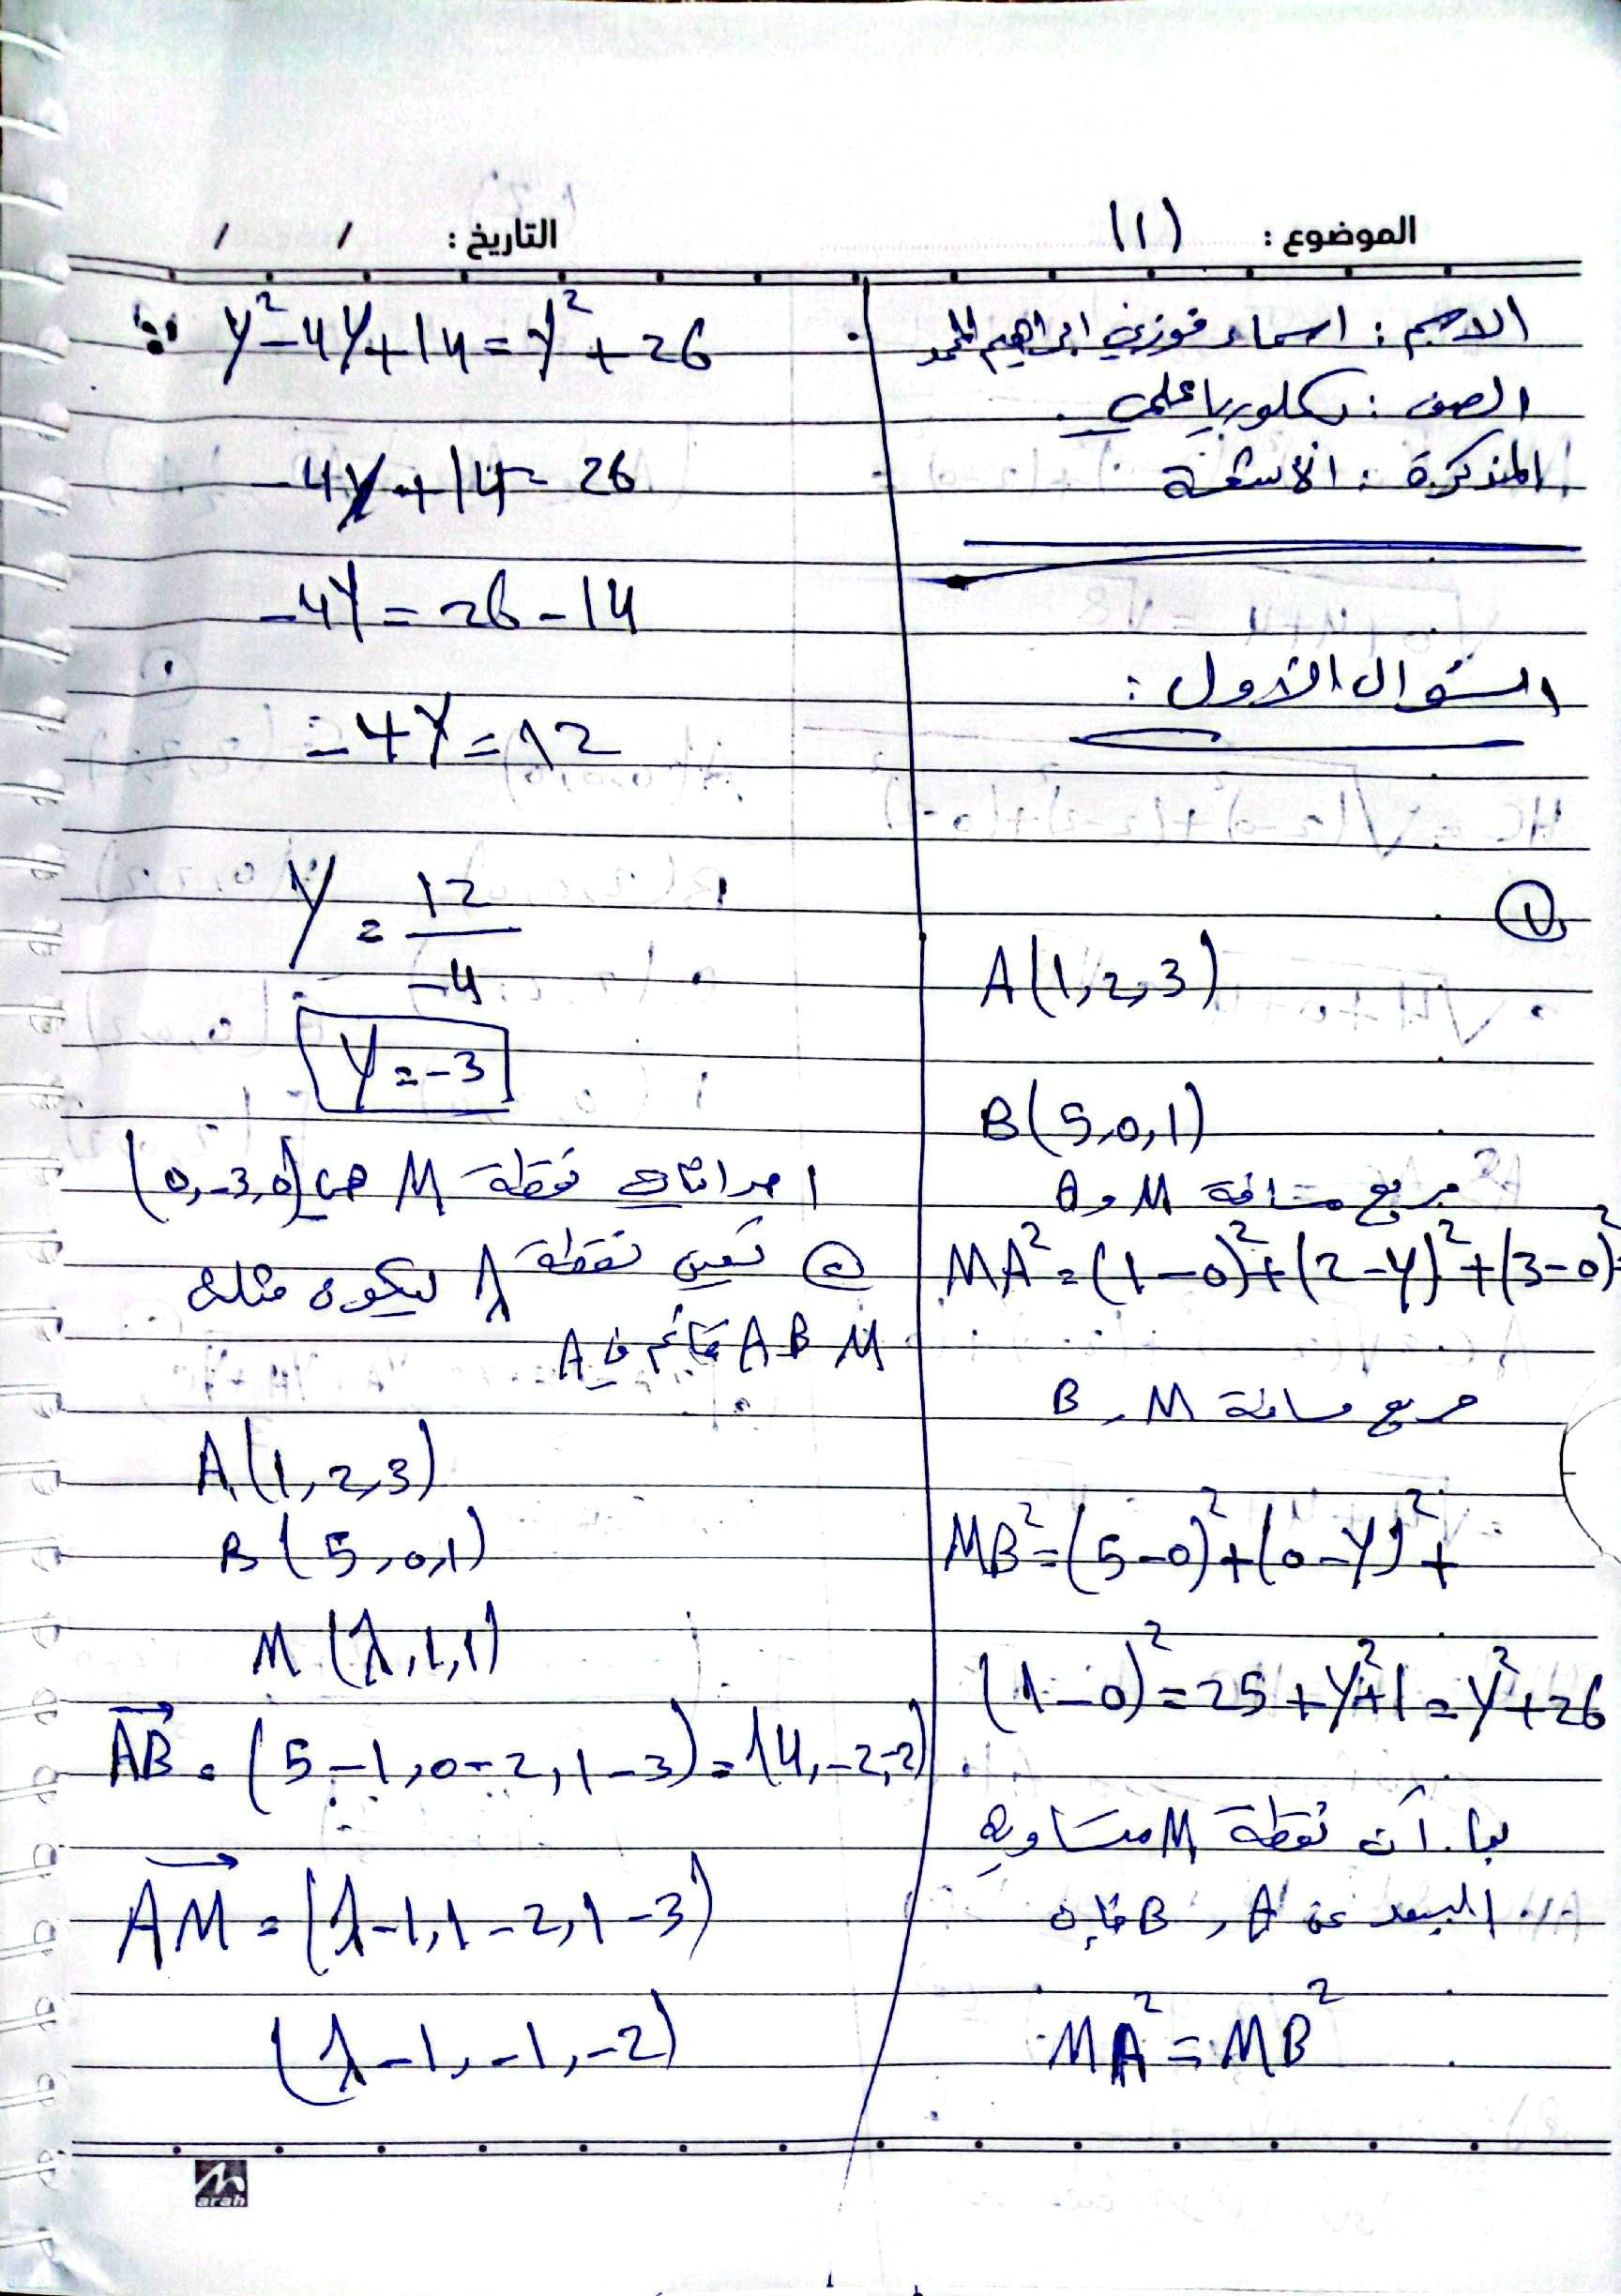 الموضوع : (1)
التاريخ : / /
الاسم : اسماء فوزي ابراهيم المحمد
الصف : بكلوريا علمي .
المذكرة : الأشعة
السؤال الاول :
①
A(1,2,3)
B(5,0,1)
مربع مسافة M و A
MA² = (1-0)² + (2-y)² + (3-0)²
مربع مسافة M , B
MB² = (5-0)² + (0-y)² +
(1-0)² = 25 + y² + 1 = y² + 26
بما أن نقطة M متساوية
البعد عن A , B فإن
MA² = MB²
y² - 4y + 14 = y² + 26
-4y + 14 = 26
-4y = 26 - 14
-4y = 12
y = 12/-4
y = -3
احداثيات نقطة M هي (0,-3,0)
② تعين نقطة λ ليكون مثلث
ABM قائم في A
A(1,2,3)
B(5,0,1)
M(λ,1,1)
AB = (5-1,0-2,1-3) = (4,-2,-2)
AM = (λ-1,1-2,1-3)
(λ-1,-1,-2)
arah